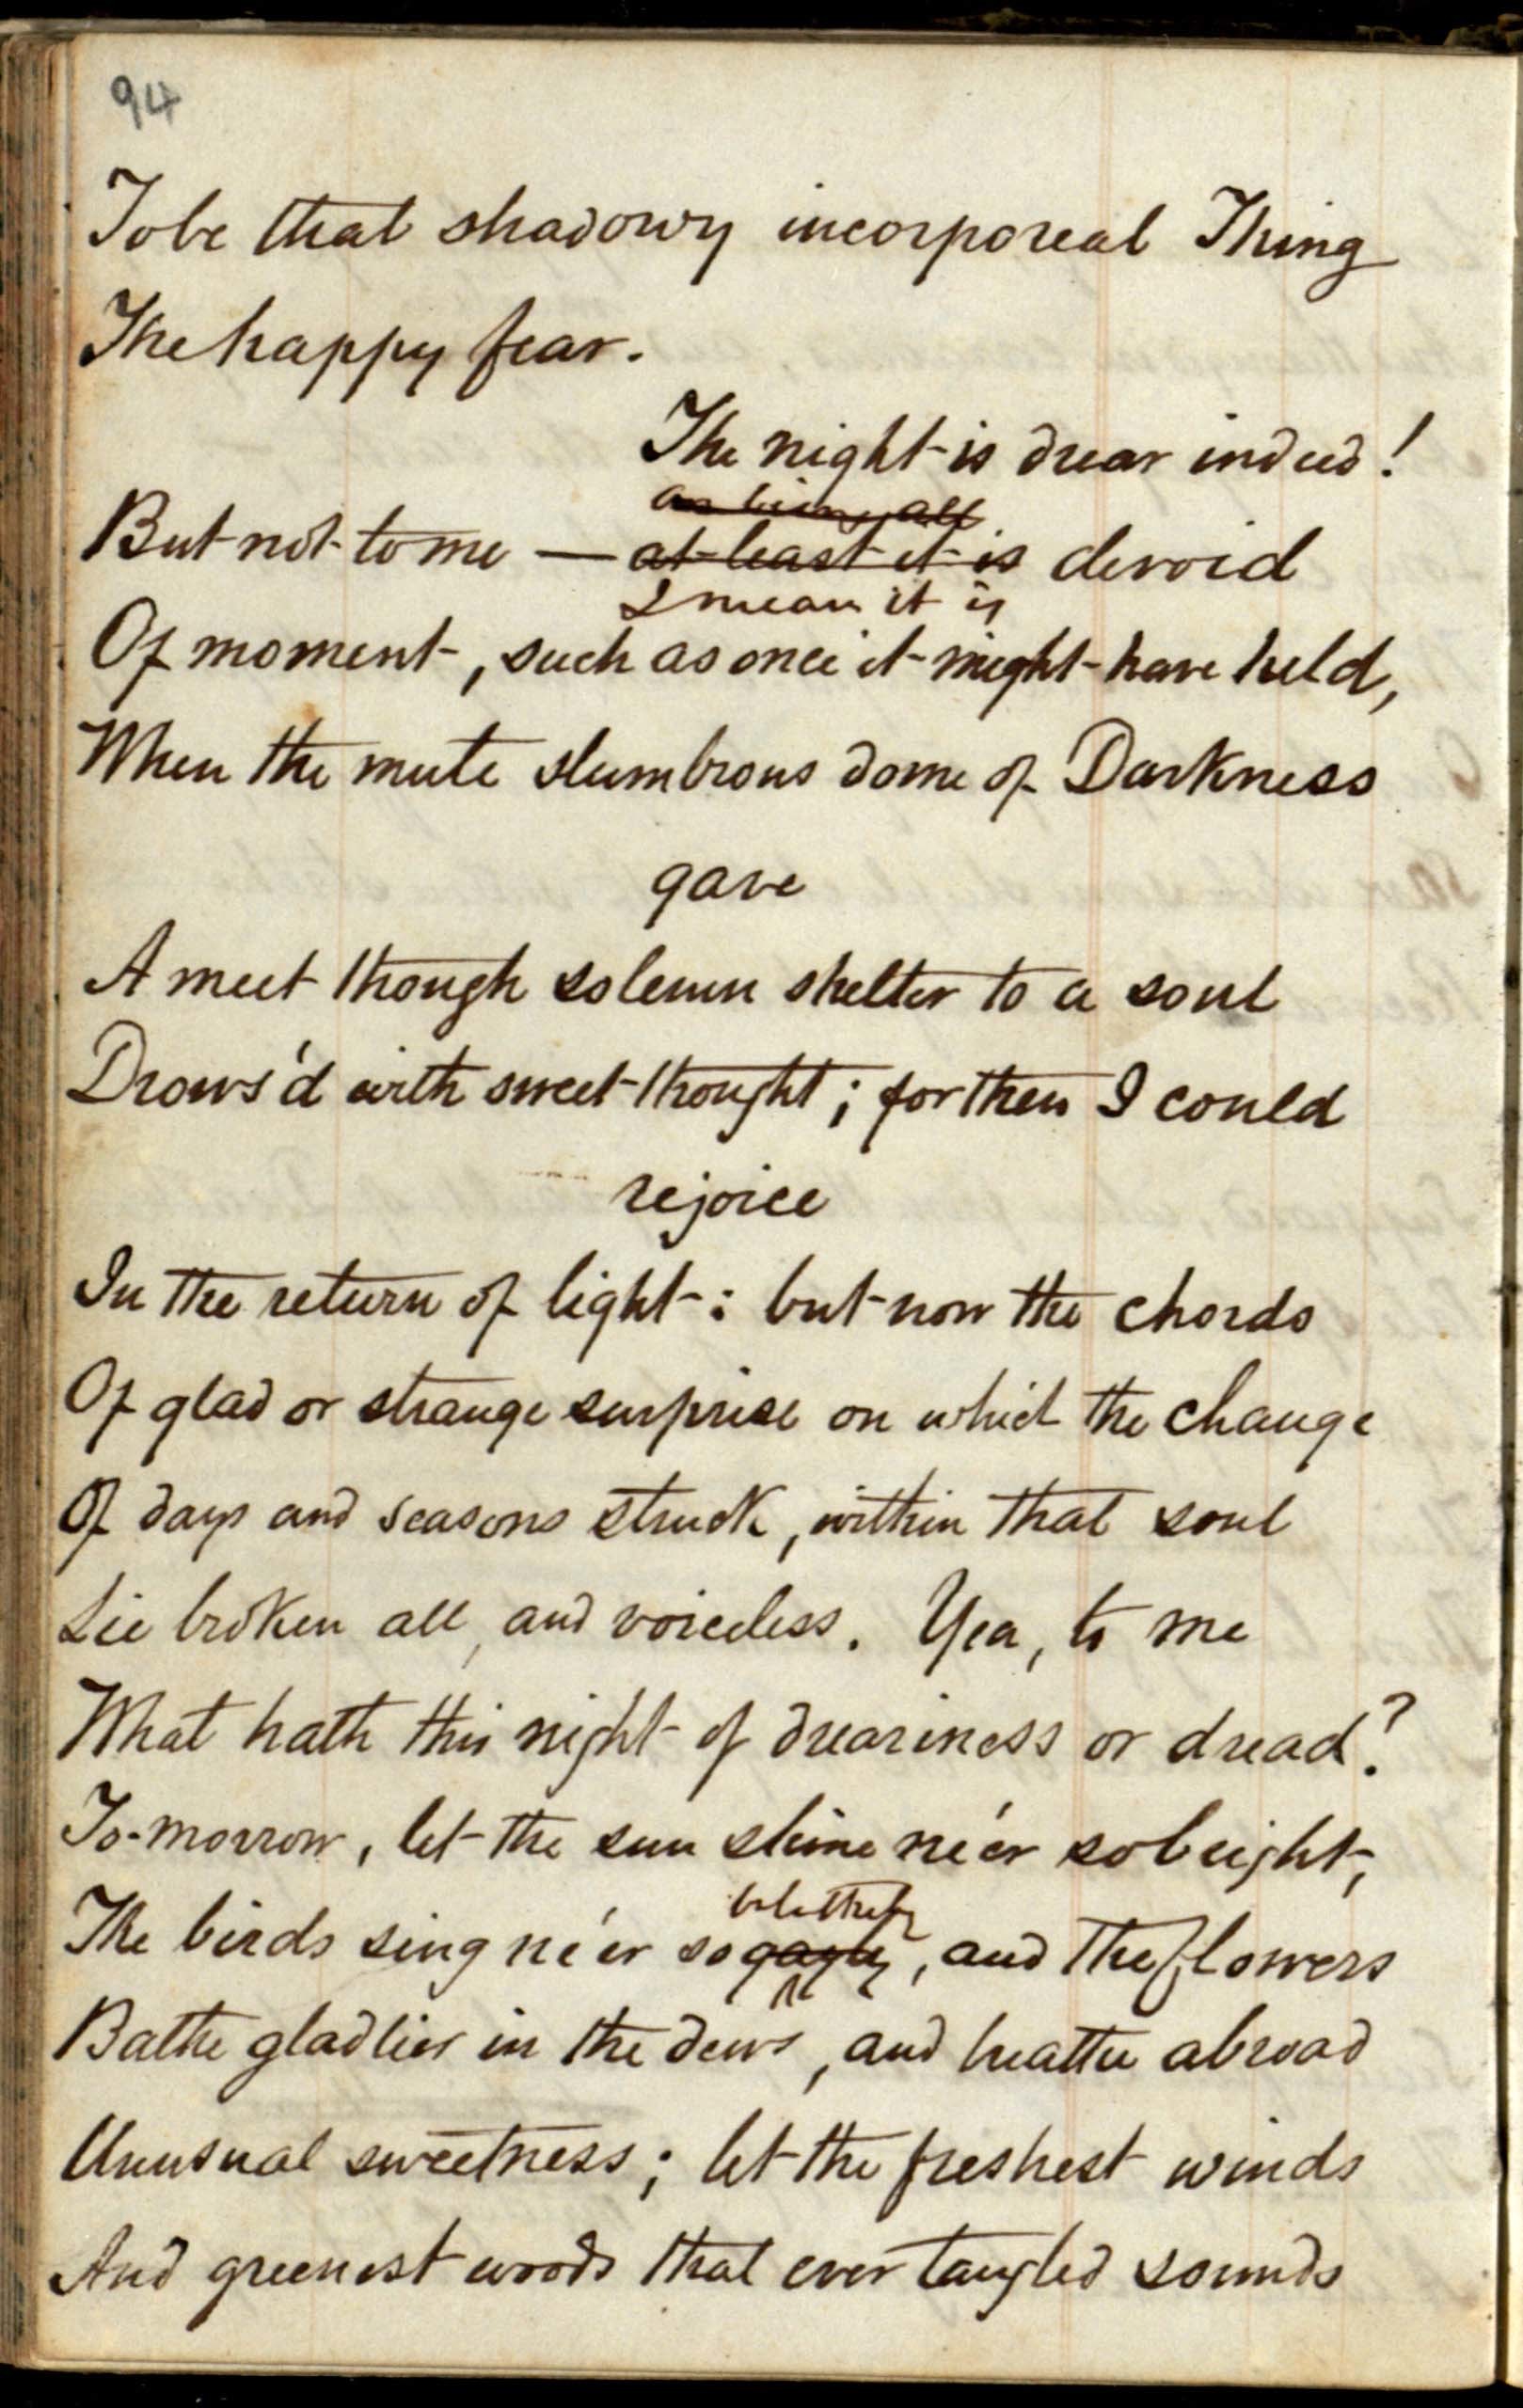 94
To be that shadowy incorporeal Thing
The happy fear.
The night is drear indeed!
as being all
But not to me — at least it is devoid
I mean it is
Of moment, such as once it might have held,
When the mute slumbrous dome of Darkness
gave
A meet though solemn shelter to a soul
Drows'd with sweet thought; for then I could
rejoice
In the return of light: but now the chords
Of glad or strange surprise on which the change
Of days and seasons struck, within that soul
Lie broken all, and voiceless. Yea, to me
What hath this night of dreariness or dread?
To-morrow, let the sun shine ne'er so bright,
blithely
The birds sing ne'er so gayly, and the flowers
Bathe gladlier in the dews, and breathe abroad
Unusual sweetness; let the freshest winds
And greenest woods that ever tangled sounds